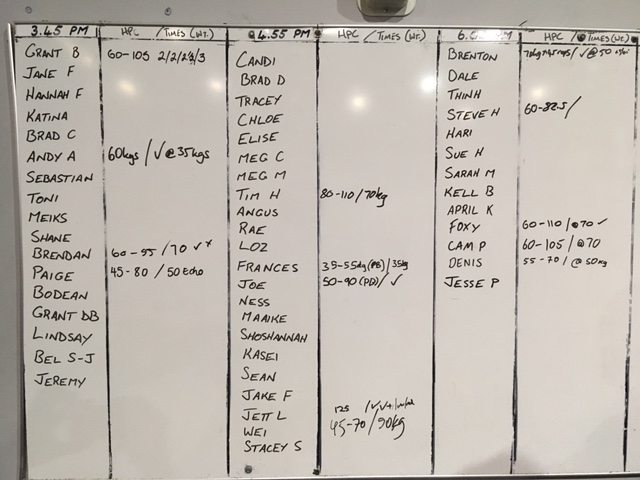 3.45 PM HPC / TIMES (WT.)
GRANT B 60-105 2/2/2
JANE F
HANNAH F
KATINA
BRAD C
ANDY A 60kgs / ✓@35kgs
SEBASTIAN
TONI
MEIKS
SHANE
BRENDAN 60-95 / 70 ✓
PAIGE 45-80 / 50 echo
BODEAN
GRANT DB
LINDSAY
BEL S-J
JEREMY
4.55 PM HPC / TIMES (WT.)
CANDI
BRAD D
TRACEY
CHLOE
ELISE
MEG C
MEG M
TIM H 80-110/70kg
ANGUS
RAE
LOZ
FRANCES 35-55kg (PB) / 35kg
JOE 50-90 (PB) / ✓
NESS
MAAIKE
SHOSHANNAH
KASEI
SEAN
JAKE F
JETT L 125
WEI 45-70/90kg
STACEY S
HPC / TIMES (WT.)
BRENTON / ✓@50
DALE
THINH
STEVE H 60-82.5/
HARI
SUE H
SARAH M
KELL B
APRIL K
FOXY 60-110 / @70 ✓
CAM P 60-105 / @70
DENIS 55-70 / @50kg
JESSE P